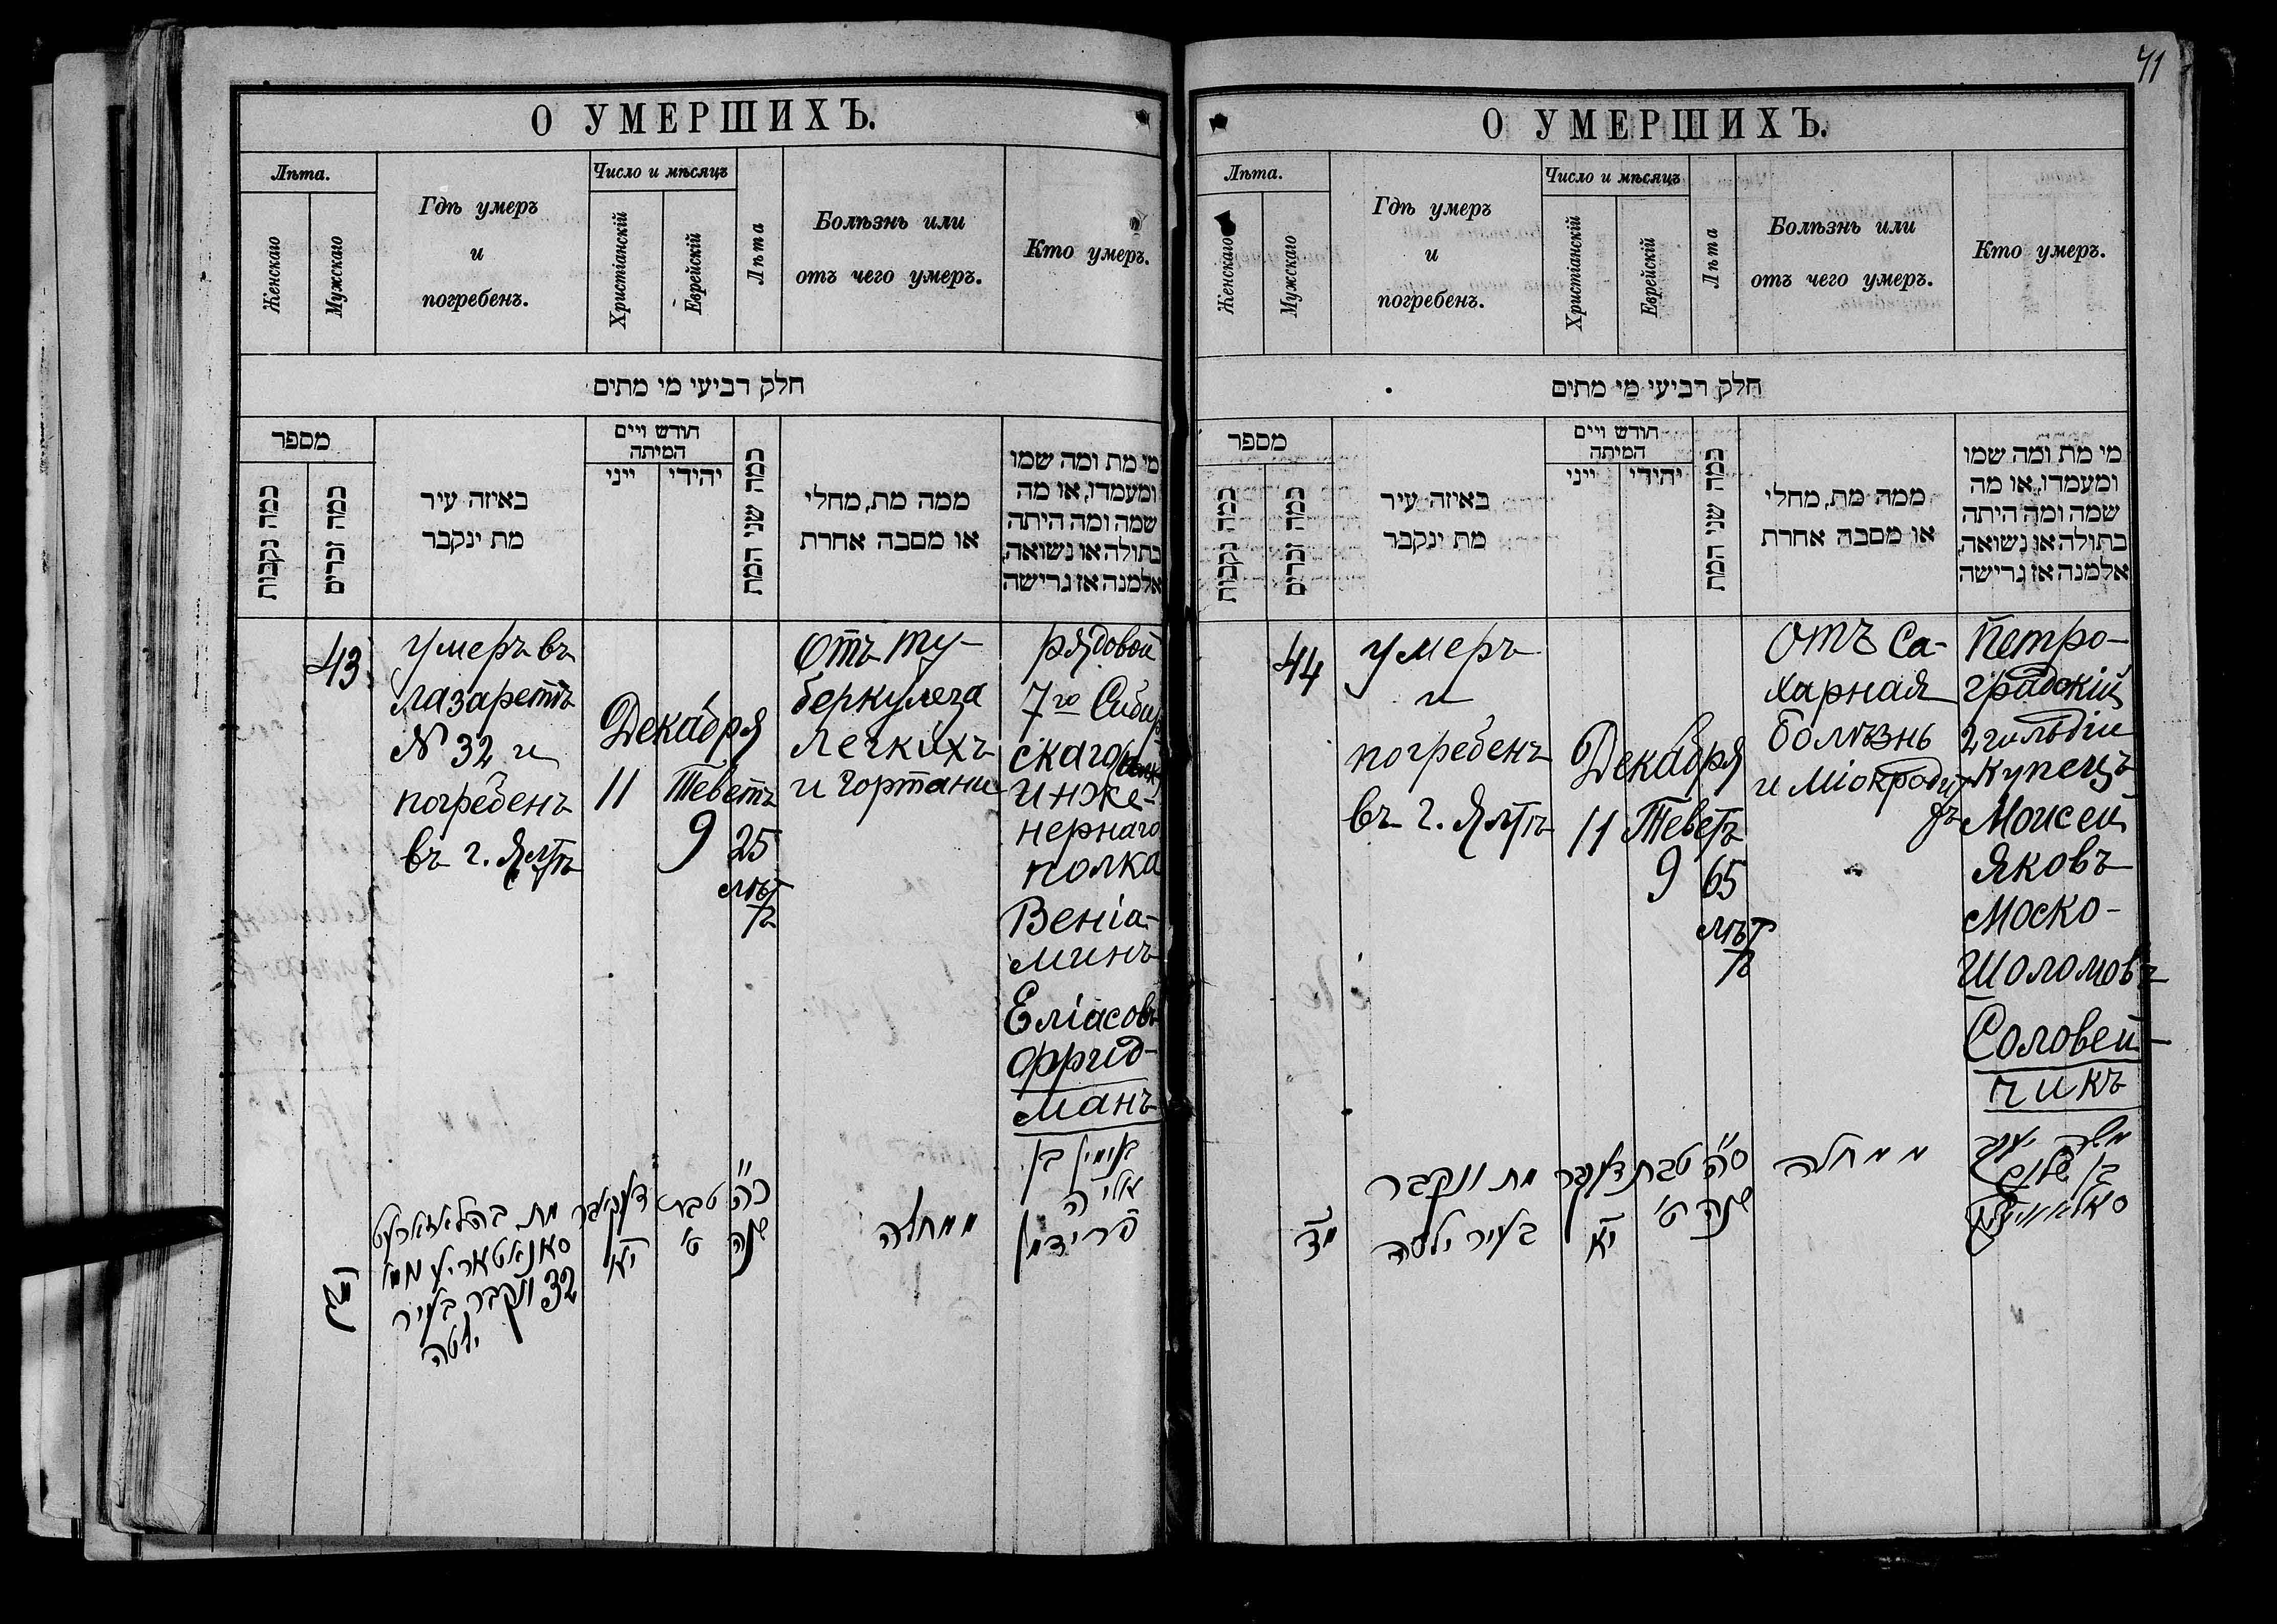 41
О УМЕРШИХЪ.
Лѣта.
Женскаго
Мужскаго
Гдѣ умеръ
и
погребенъ.
Число и мѣсяцъ
Христіанскій
Еврейскій
Лѣта
Болѣзнь или
отъ чего умеръ.
Кто умеръ.
חלק רביעי מי מתים
מספר
כמה נקבות
כמה זכרים
באיזה עיר
מת ינקבר
חודש ויים
המיתה
ייני
יהידי
כמה שני המת
ממה מת, מחלי
או מסבה אחרת
מי מת ומה שמו
ומעמדו, או מה
שמה ומה היתה
בתולה או נשואה,
אלמנה או גרישה
43
умеръ въ
лазаретѣ
№ 32 и
погребенъ
въ г. Ялтѣ
Декабря
11
Теветъ
9
25
лѣт
ъ
Отъ ту-
беркулеза
легкихъ
и гортани
рядовой
7го Сибир
скаго
инже-
нернаго
полка
Веніа-
минъ
Еліасовъ
Фрид-
манъ
מג
מת
32 ונקבר בעיר
ילטה
יא
טבת
ט׳
כ״ה
שנה
ממחלה
בנימין בן
אליה
פרידמן
О УМЕРШИХЪ.
Лѣта.
Женскаго
Мужскаго
Гдѣ умеръ
и
погребенъ.
Число и мѣсяцъ
Христіанскій
Еврейскій
Лѣта
Болѣзнь или
отъ чего умеръ.
Кто умеръ.
חלק רביעי מי מתים
מספר
כמה נקבות
כמה זכרים
באיזה עיר
מת ינקבר
חודש ויים
המיתה
ייני
יהידי
כמה שני המת
ממה מת, מחלי
או מסבה אחרת
מי מת ומה שמו
ומעמדו, או מה
שמה ומה היתה
בתולה או נשואה,
אלמנה או גרישה
44
умеръ
и
погребенъ
въ г. Ялтѣ
Декабря
11
Теветъ
9
65
лѣт
ъ
отъ са-
харная
болѣзнь
и міокродит
ъ
Петро-
градскій
2 гильдіи
купецъ
Моисей
Яковъ
Моско-
Шоломовъ
Соловей-
чикъ
מד
מת ונקבר
בעיר ילטה
יא
טבת
ט׳
ס״ה
שנה
ממחלה
משה יעקב
בן שלום